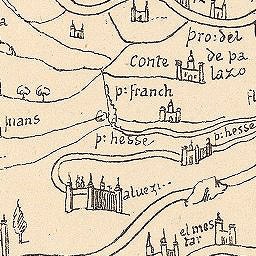 pro:del
conte de pa
lazo
p: franch
p: hesse
p: hesse
el mes
tar